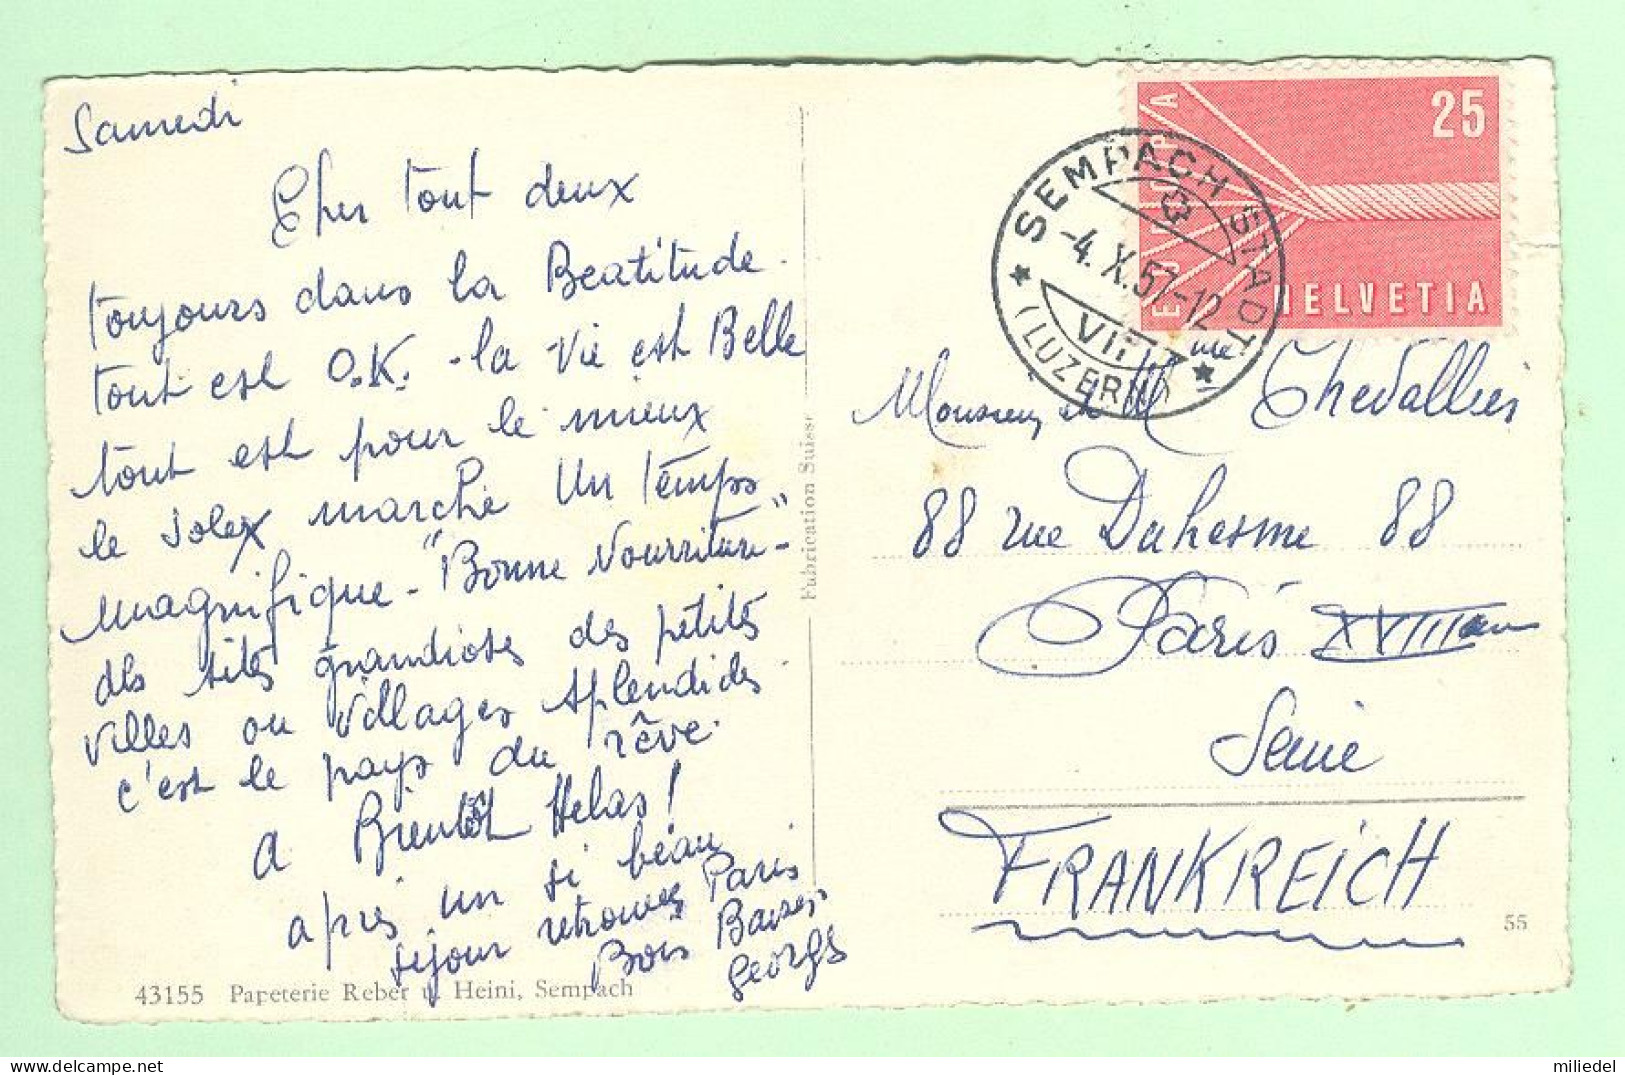 Samedi
Cher tout deux
toujours dans la Beatitude.
tout est O.K. - la vie est Belle
tout est pour le mieux
le solex marche Un temps
magnifique - "Bonne Nourriture" -
des sites grandioses des petites
villes ou villages splendides
c'est le pays du rêve.
A Bientôt Helas!
après un si beau
séjour retrouver Paris
Bons Baisers
Georges
43155 Papeterie Reber u. Heini, Sempach
Fabrication Suisse
EUROPA
25
HELVETIA
SEMPACH STADT
-4. X. 57-12
(LUZERN)
Monsieur et Mme Chevallier
88 rue Duhesme 88
Paris XVIIIem
Seine
FRANKREICH
55
miliedel